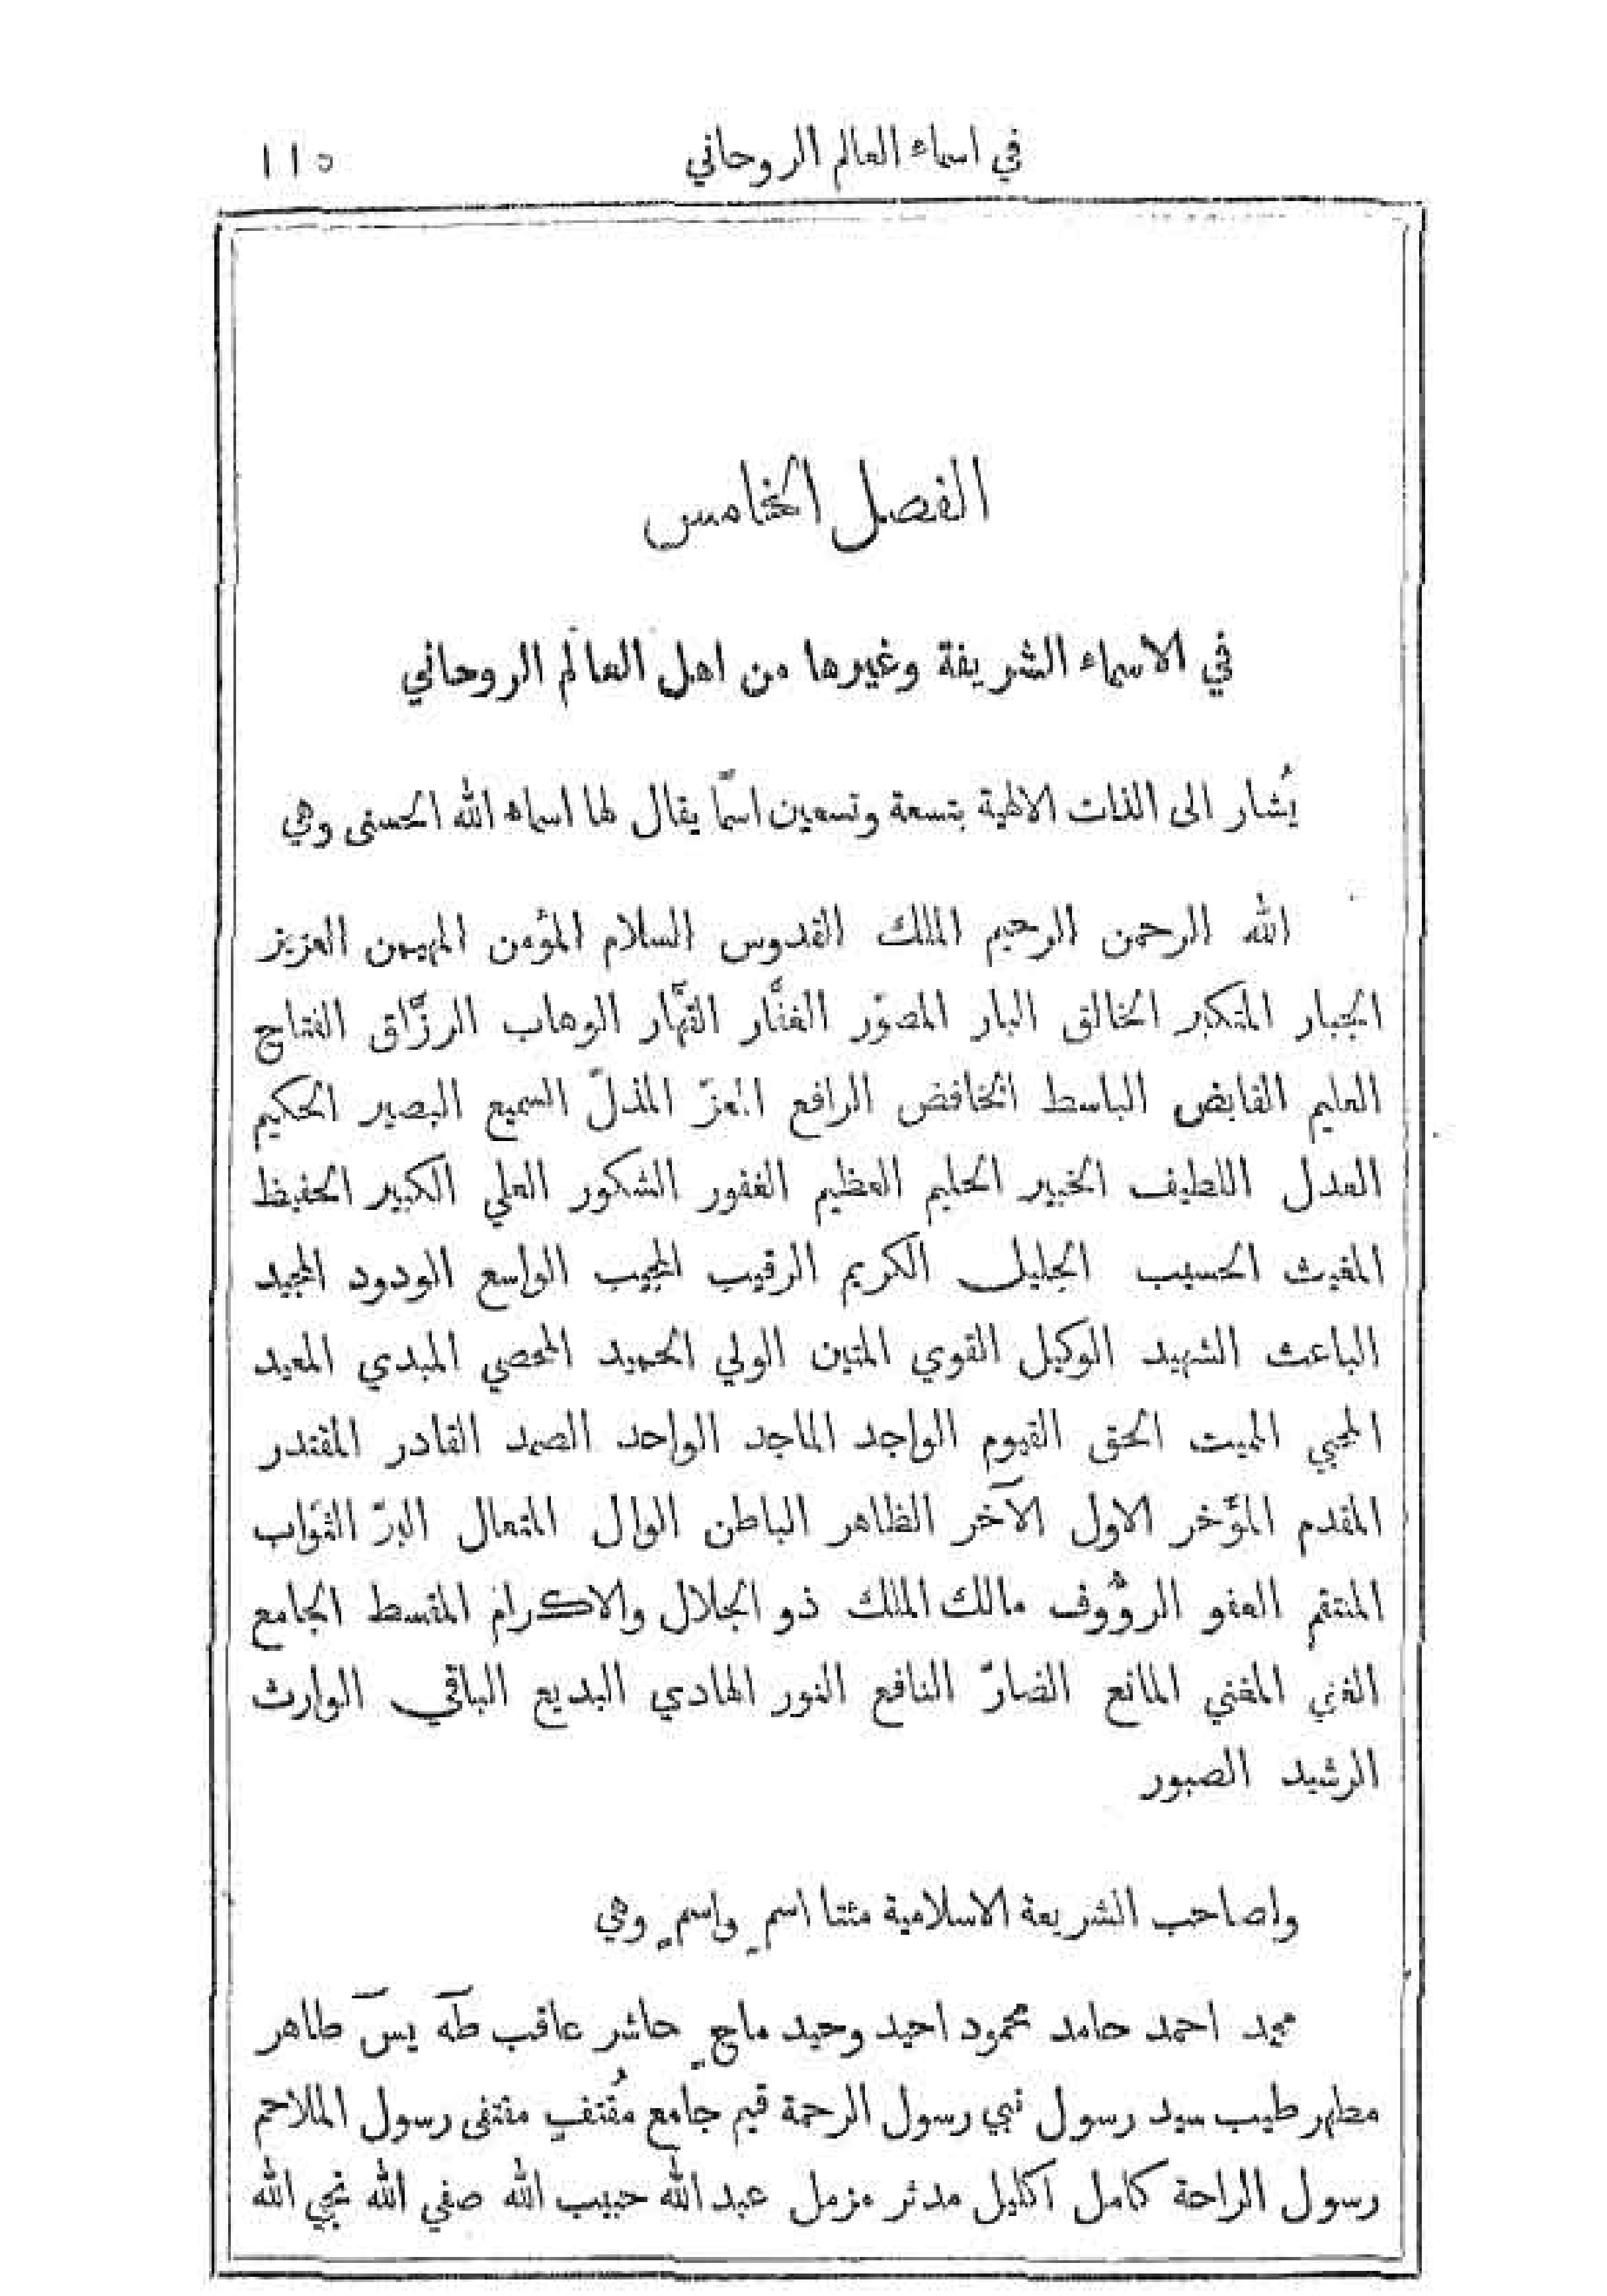 في اسماء العالم الروحاني ١١٥
الفصل الخامس
في الاسماء الشريفة وغيرها من اهل العالم الروحاني
يُشار الى الذات الالهية بتسعة وتسعين اسمًا يقال لها اسماء الله الحسنى وهي
الله الرحمن الرحيم الملك القدوس السلام المؤمن المهيمن العزيز
الجبار المتكبر الخالق البار المصوّر الغفَّار القهَّار الوهاب الرزَّاق الفتاح
العليم القابض الباسط الخافض الرافع المعزّ المذلّ السميع البصير الحكيم
العدل اللطيف الخبير الحليم العظيم الغفور الشكور العلي الكبير الحفيظ
المغيث الحسيب الجليل الكريم الرقيب المجيب الواسع الودود المجيد
الباعث الشهيد الوكيل القوي المتين الولي الحميد المحصي المبدي المعيد
المحيي المميت الحق القيوم الواجد الماجد الواحد الصمد القادر المقتدر
المقدم المؤخر الاول الآخر الظاهر الباطن الوال المتعال البرّ التواب
المنتقم العفو الرؤُوف مالك الملك ذو الجلال والاكرام المقسط الجامع
الغني المغني المانع الضارّ النافع النور الهادي البديع الباقي الوارث
الرشيد الصبور
ولصاحب الشريعة الاسلامية مئتا اسمٍ واسمٍ وهي
محمد احمد حامد محمود احيد وحيد ماحٍ حاشر عاقب طٓه يسٓ طاهر
مطهر طيب سيد رسول نبي رسول الرحمة قيم جامع مُقتفٍ مقتفى رسول الملاحم
رسول الراحة كامل اكليل مدثر مزمل عبد الله حبيب الله صفي الله نجي الله